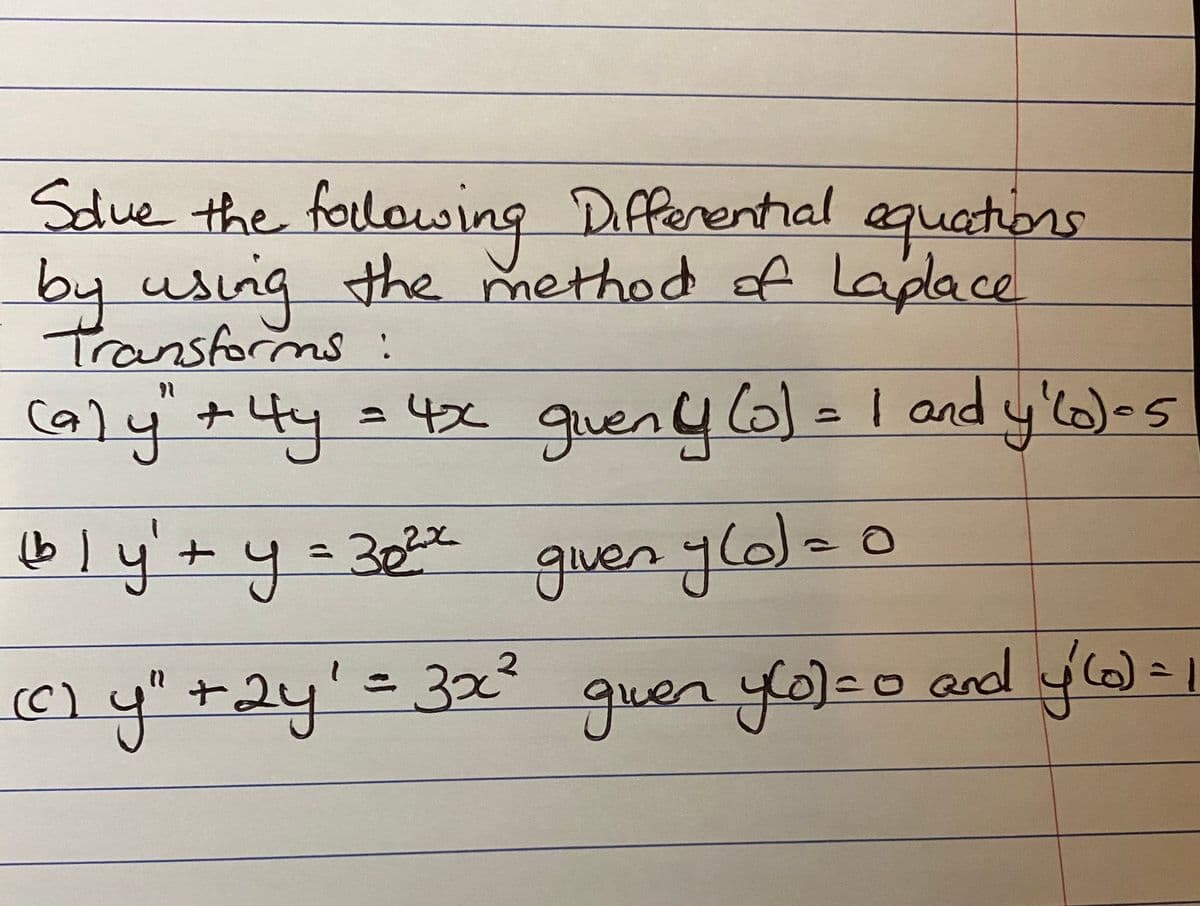 Solve the following Differential equations
by using the method of Laplace
Transforms :
(a) y" + 4y = 4x given y(0) = 1 and y'(0) = 5
(b) y' + y = 3e²ˣ given y(0) = 0
(c) y" + 2y' = 3x² given y(0) = 0 and y'(0) = 1